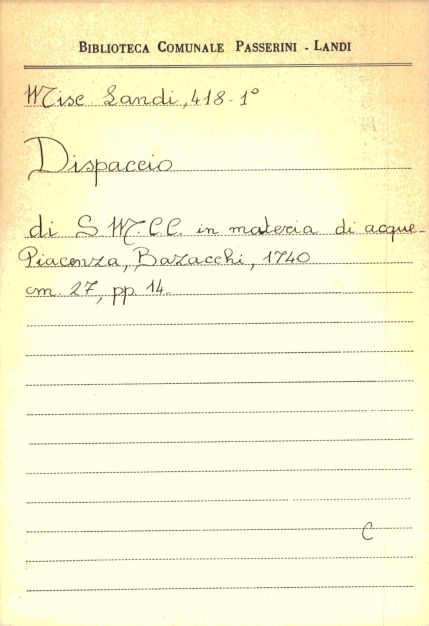 BIBLIOTECA COMUNALE PASSERINI - LANDI
Misc Landi, 418-1°
Dispaccio
di S. M. CC. in materia di acque-
Piacenza, Bazacchi, 1740
cm. 27, pp. 14.
C